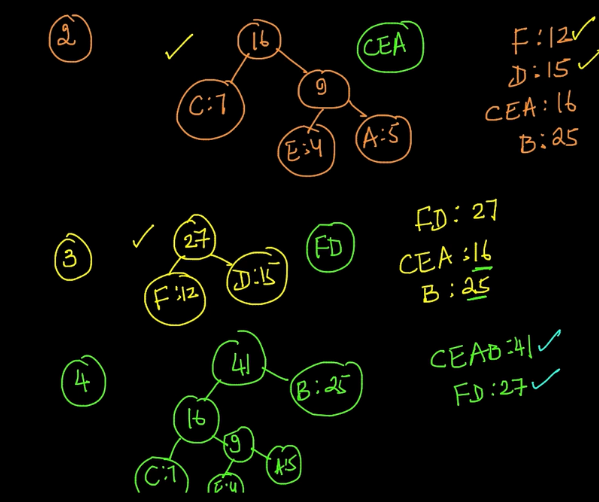 2
16
CEA
C:7
9
E:4
A:5
F:12
D:15
CEA:16
B:25
3
27
FD
F:12
D:15
FD: 27
CEA:16
B:25
4
41
B:25
16
9
C:7
E:4
A:5
CEAB:41
FD:27